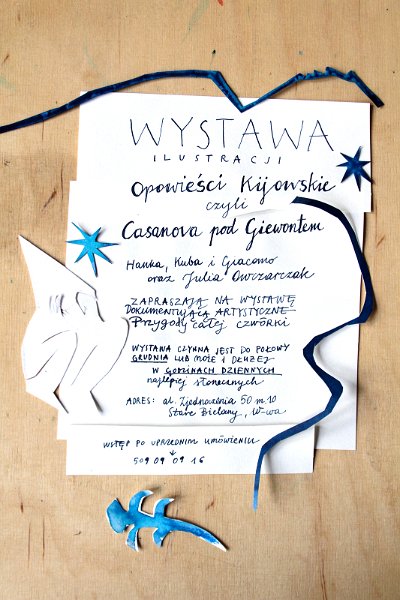 WYSTAWA
ILUSTRACJI
Opowieści Kijowskie
czyli
Casanova pod Giewontem
Hanka, Kuba i Giacomo
oraz Julia Owczarczak
ZAPRASZAJĄ NA WYSTAWĘ
DOKUMENTUJĄCĄ ARTYSTYCZNE
Przygody całej czwórki
WYSTAWA CZYNNA JEST DO POŁOWY
GRUDNIA LUB MOŻE I DŁUŻEJ
W GODZINACH DZIENNYCH
najlepiej słonecznych
ADRES: al. Zjednoczenia 50 m. 10
Stare Bielany, W-wa
WSTĘP PO UPRZEDNIM UMÓWIENIU
509 09 09 16